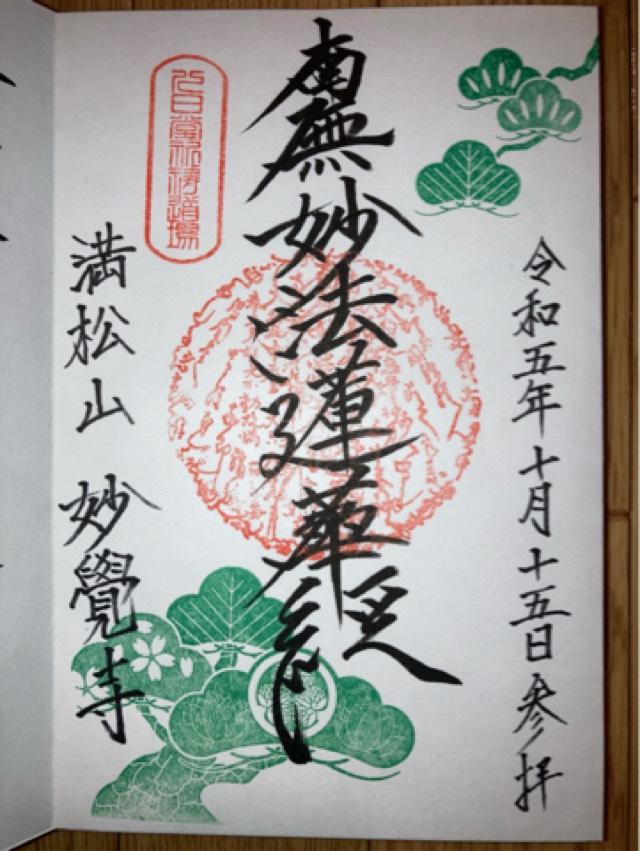 令和五年十月十五日参拝
南無妙法蓮華経
満松山 妙覺寺